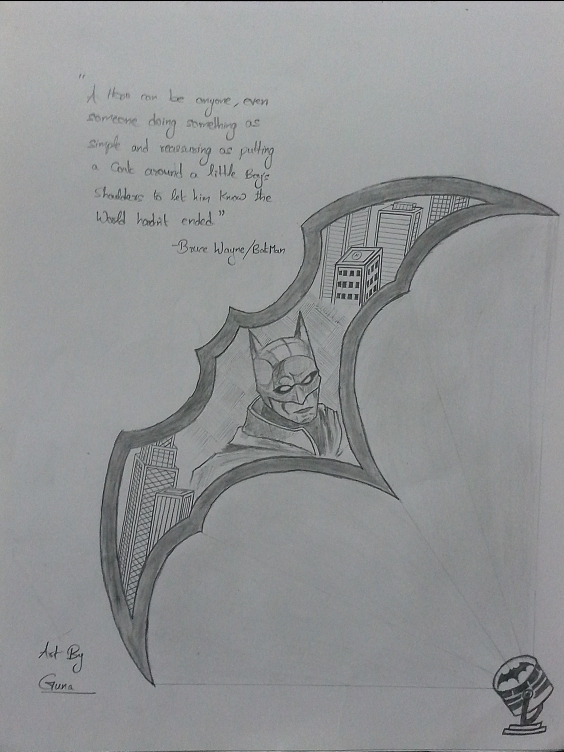 "
A Hero can be anyone, even
someone doing something as
simple and reassuring as putting
a Coat around a little Boy's
Shoulders to let him Know the
World hadn't ended"
-Bruce Wayne/BatMan
Art By
Guna